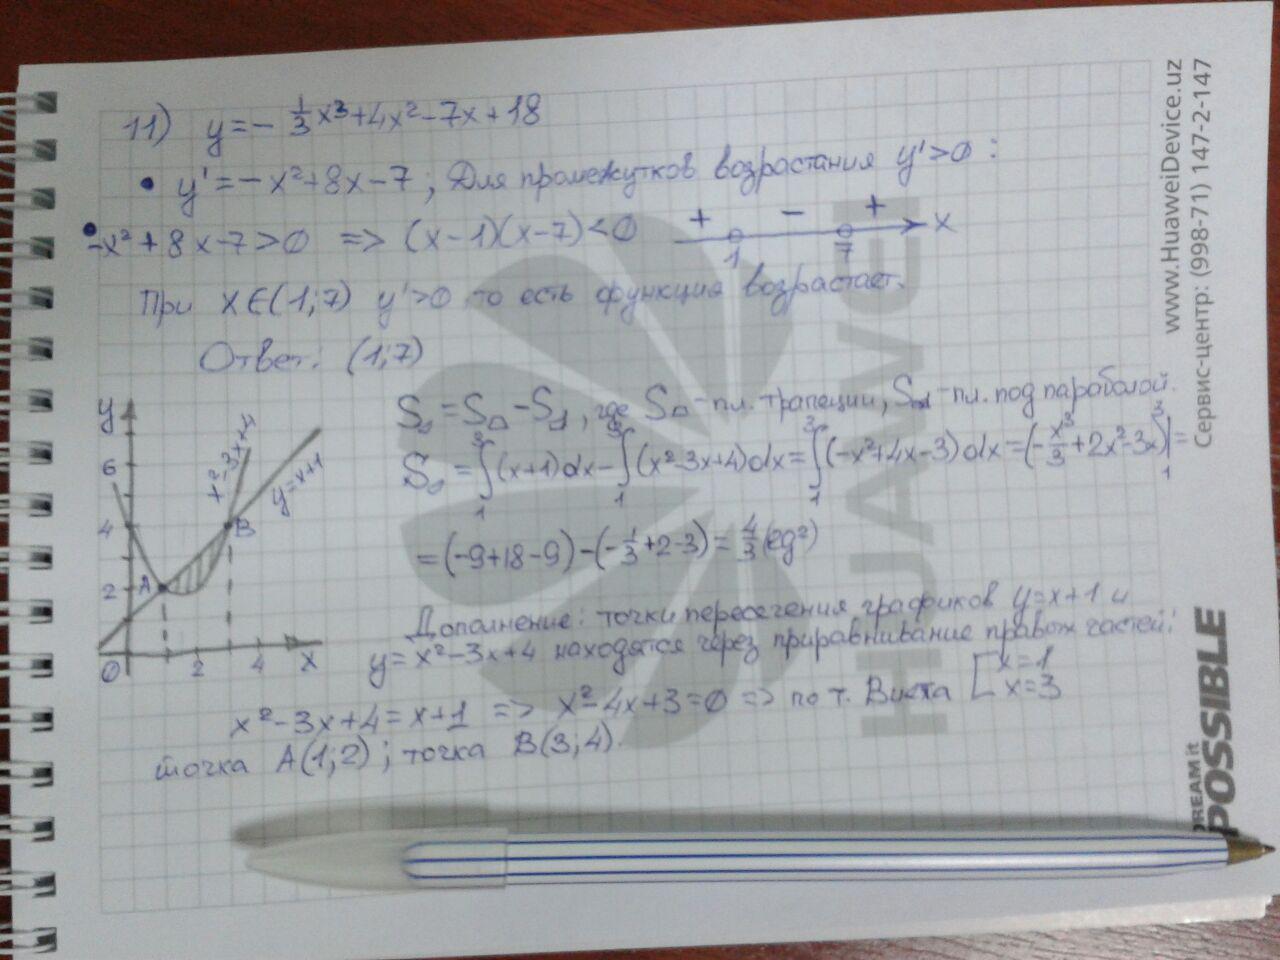 11) y = - 1/3 x³ + 4x² - 7x + 18
• y' = -x² + 8x - 7 ; Для промежутков возрастания y' > 0 :
• -x² + 8x - 7 > 0 => (x-1)(x-7) < 0 + - + x
1 7
При x∈(1;7) y' > 0 то есть функция возрастает.
Ответ: (1;7)
y
6
4
2
0 2 4 x
A
B
x²-3x+4
y=x+1
S = S - S , где S - пл. трапеции, S - пл. под параболой.
S = ∫₁³ (x+1)dx - ∫₁³ (x²-3x+4)dx = ∫₁³ (-x²+4x-3)dx = (-x³/3 + 2x² - 3x)|₁³ =
= (-9+18-9) - (-1/3+2-3) = 4/3 (ед²)
Дополнение: точки пересечения графиков y=x+1 и
y = x²-3x+4 находятся через приравнивание правых частей:
x²-3x+4 = x+1 => x²-4x+3=0 => по т. Виета [x=1 x=3
точка A(1;2) ; точка B(3;4).
HUAWEI
www.HuaweiDevice.uz
Сервис-центр: (998-71) 147-2-147
DREAM it
POSSIBLE